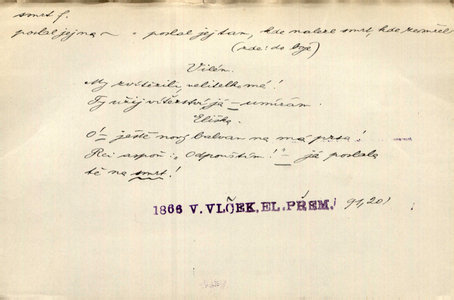 smrt f.
poslal jej na ~ = poslal jej tam, kde nalezl smrt, kde zemřel
(zde: do boje)
Vilém.
My zvítězili, velitelko má!
Ty užij vítězství, já – umírám.
Eliška.
Ó! – ještě nový balvan na má prsa!
Rci aspoň: „Odpouštím!" – já poslala
tě na smrt!
1866 V. VLČEK, EL. PŘEM. 91, 20)